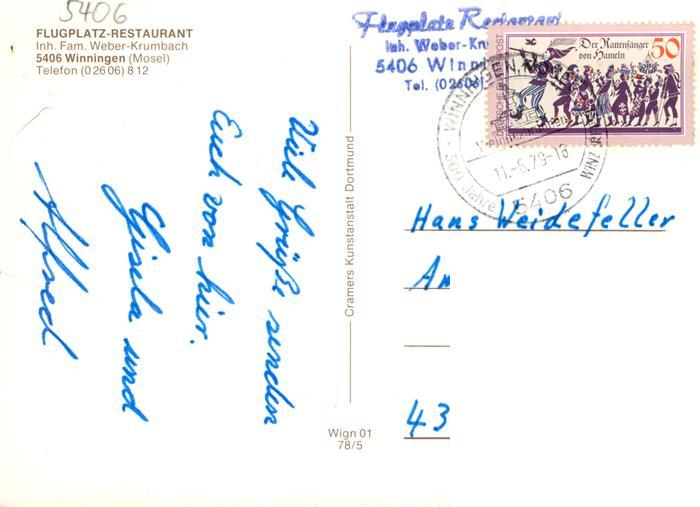 5406
FLUGPLATZ-RESTAURANT
Inh. Fam. Weber-Krumbach
5406 Winningen (Mosel)
Telefon (0 26 06) 8 12
Viele Grüße senden
Euch von hier.
Gisela und
Alfred
Cramers Kunstanstalt Dortmund
Wign 01
78/5
Flugplatz Restaurant
Inh. Weber-Kru
5406 Winni
Tel. (02606)
DEUTSCHE BUNDESPOST
Der Rattenfänger
von Hameln
50
WINNINGEN, MOSEL
11.-8.79-18
500 Jahre
5406
Hans Weidefeller
Am
43